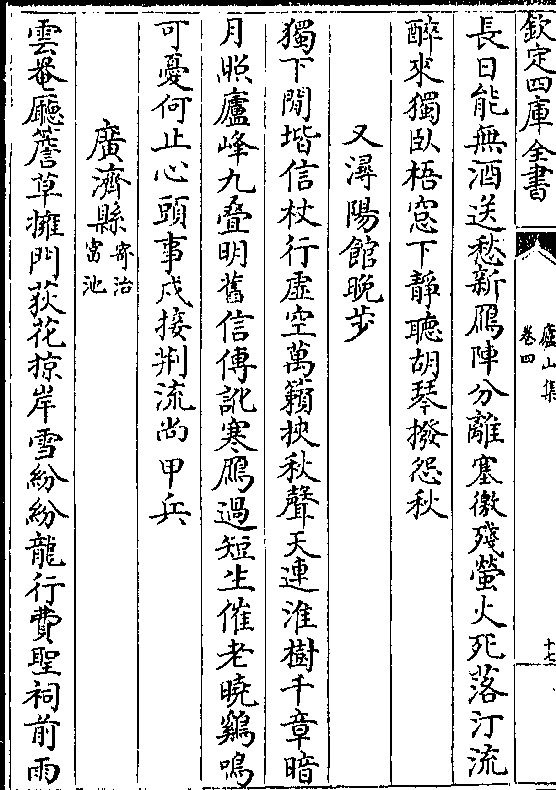 欽定四庫全書
廬山集
卷四
十七
長日能無酒送愁新鴈陣分離塞徼殘螢火死落汀流
醉來獨臥梧窓下靜聽胡琴撥怨秋
又潯陽館晚步
獨下閒堦信杖行虛空萬籟挾秋聲天連淮樹千章暗
月照廬峰九疊明舊信傳訛寒鴈過短生催老曉鷄鳴
可憂何止心頭事戍接荆流尚甲兵
廣濟縣
寄治
富池
雲菴廳簷草擁門荻花掠岸雪紛紛龍行費聖祠前雨